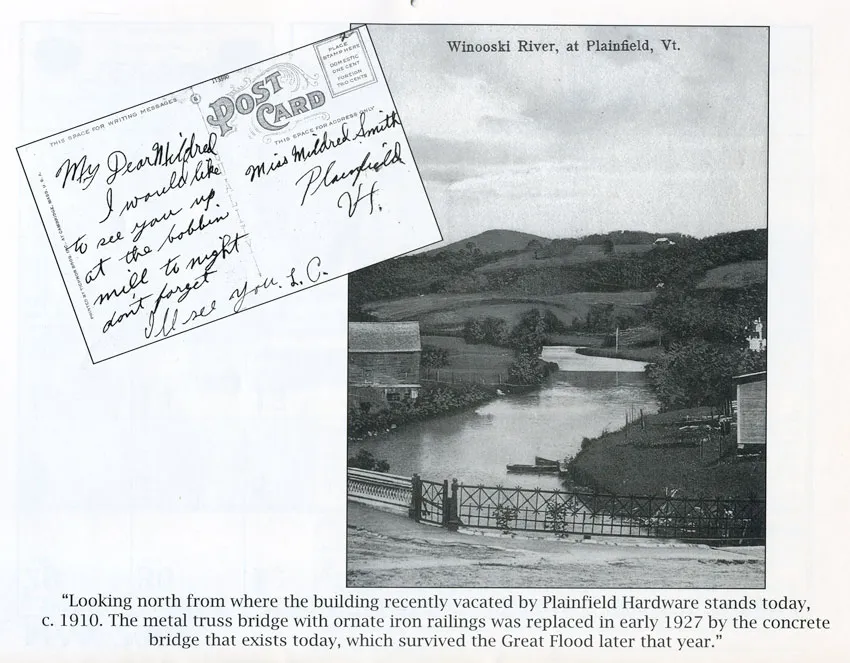 Winooski River, at Plainfield, Vt.
THIS SPACE FOR WRITING MESSAGES
POST
CARD
PLACE
STAMP HERE
DOMESTIC
ONE CENT
FOREIGN
TWO CENTS
THIS SPACE FOR ADDRESS ONLY
My Dear Mildred
I would like
to see you up
at the bobbin
mill to night
don't forget
I'll see you. L. C.
Miss Mildred Smith
Plainfield
Vt.
“Looking north from where the building recently vacated by Plainfield Hardware stands today,
c. 1910. The metal truss bridge with ornate iron railings was replaced in early 1927 by the concrete
bridge that exists today, which survived the Great Flood later that year.”